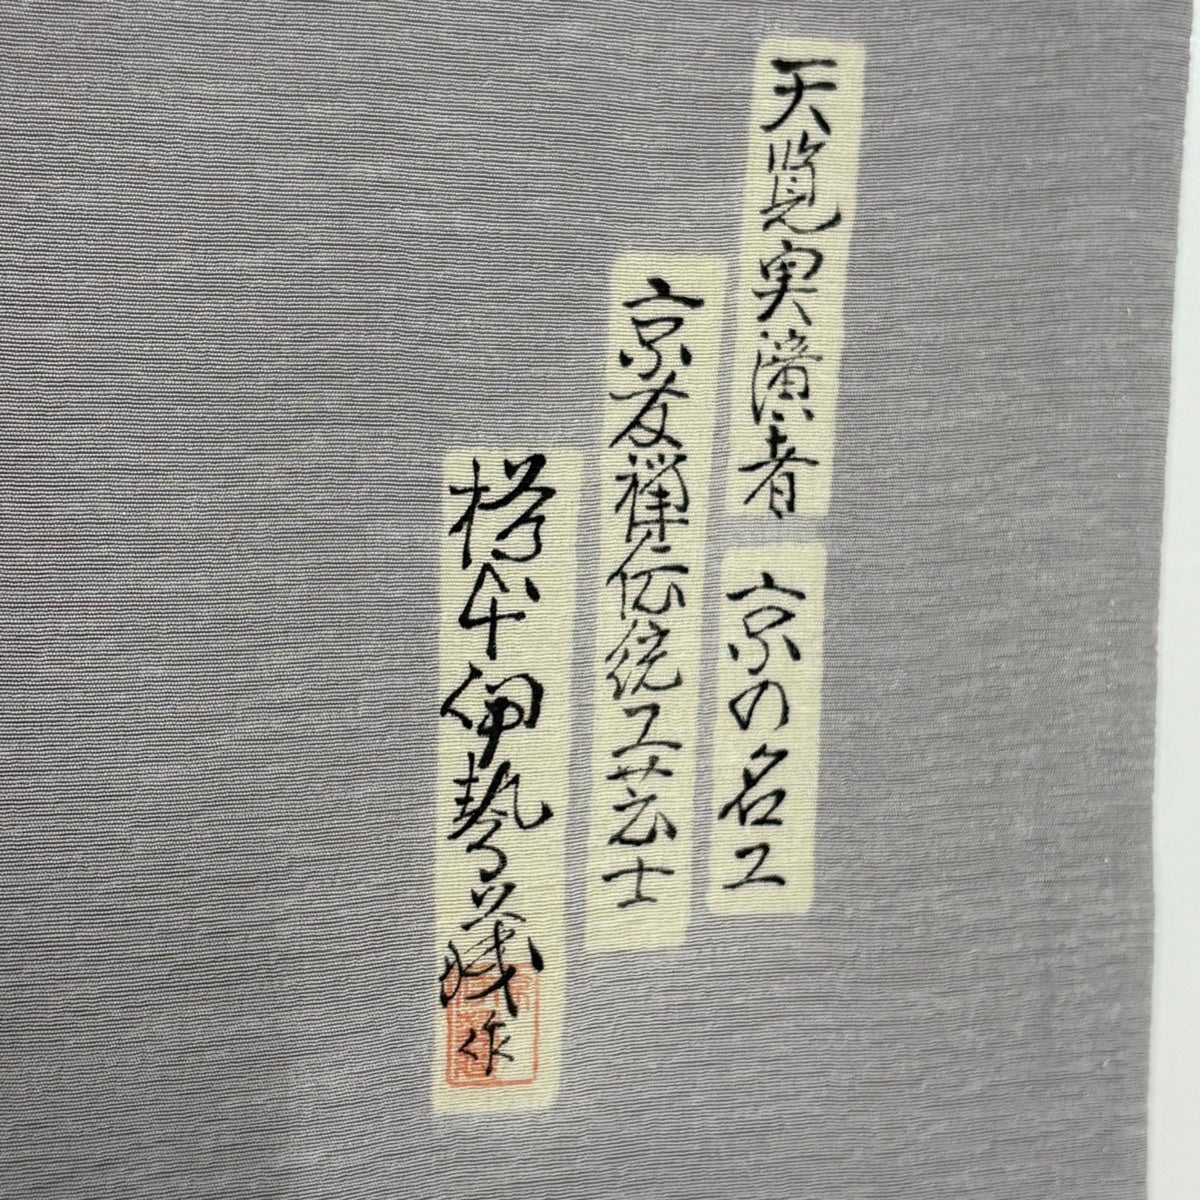 天覧実演者 京の名工
京友禅伝統工芸士
本伊勢 作